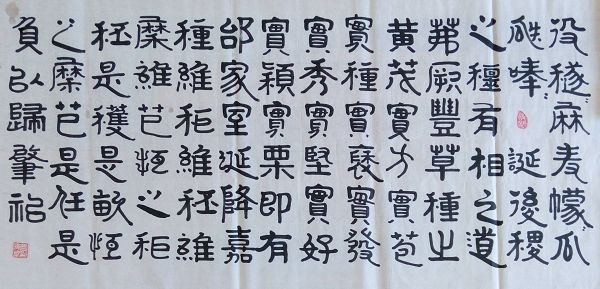 役穟〻麻麦幪〻瓜
瓞唪〻誕後稷
之穡有相之道
茀厥豐草種之
黃茂實方實苞
實種實褎實發
實秀實堅實好
實穎實栗即有
邰家室誕降嘉
種維秬維秠維
穈維芑恆之秬
秠是穫是畝恆
之穈芑是任是
負以歸肇祀